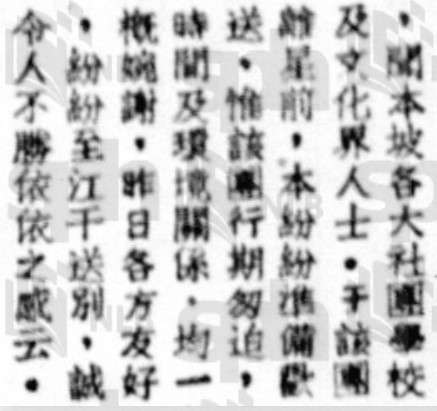 ，聞本坡各大社團學校
及文化界人士。于該團
離星前，本紛紛準備歡
送。惟該團行期匆迫，
時間及環境關係。均一
概婉謝，昨日各方友好
，紛紛至江干送別，誠
令人不勝依依之感云。